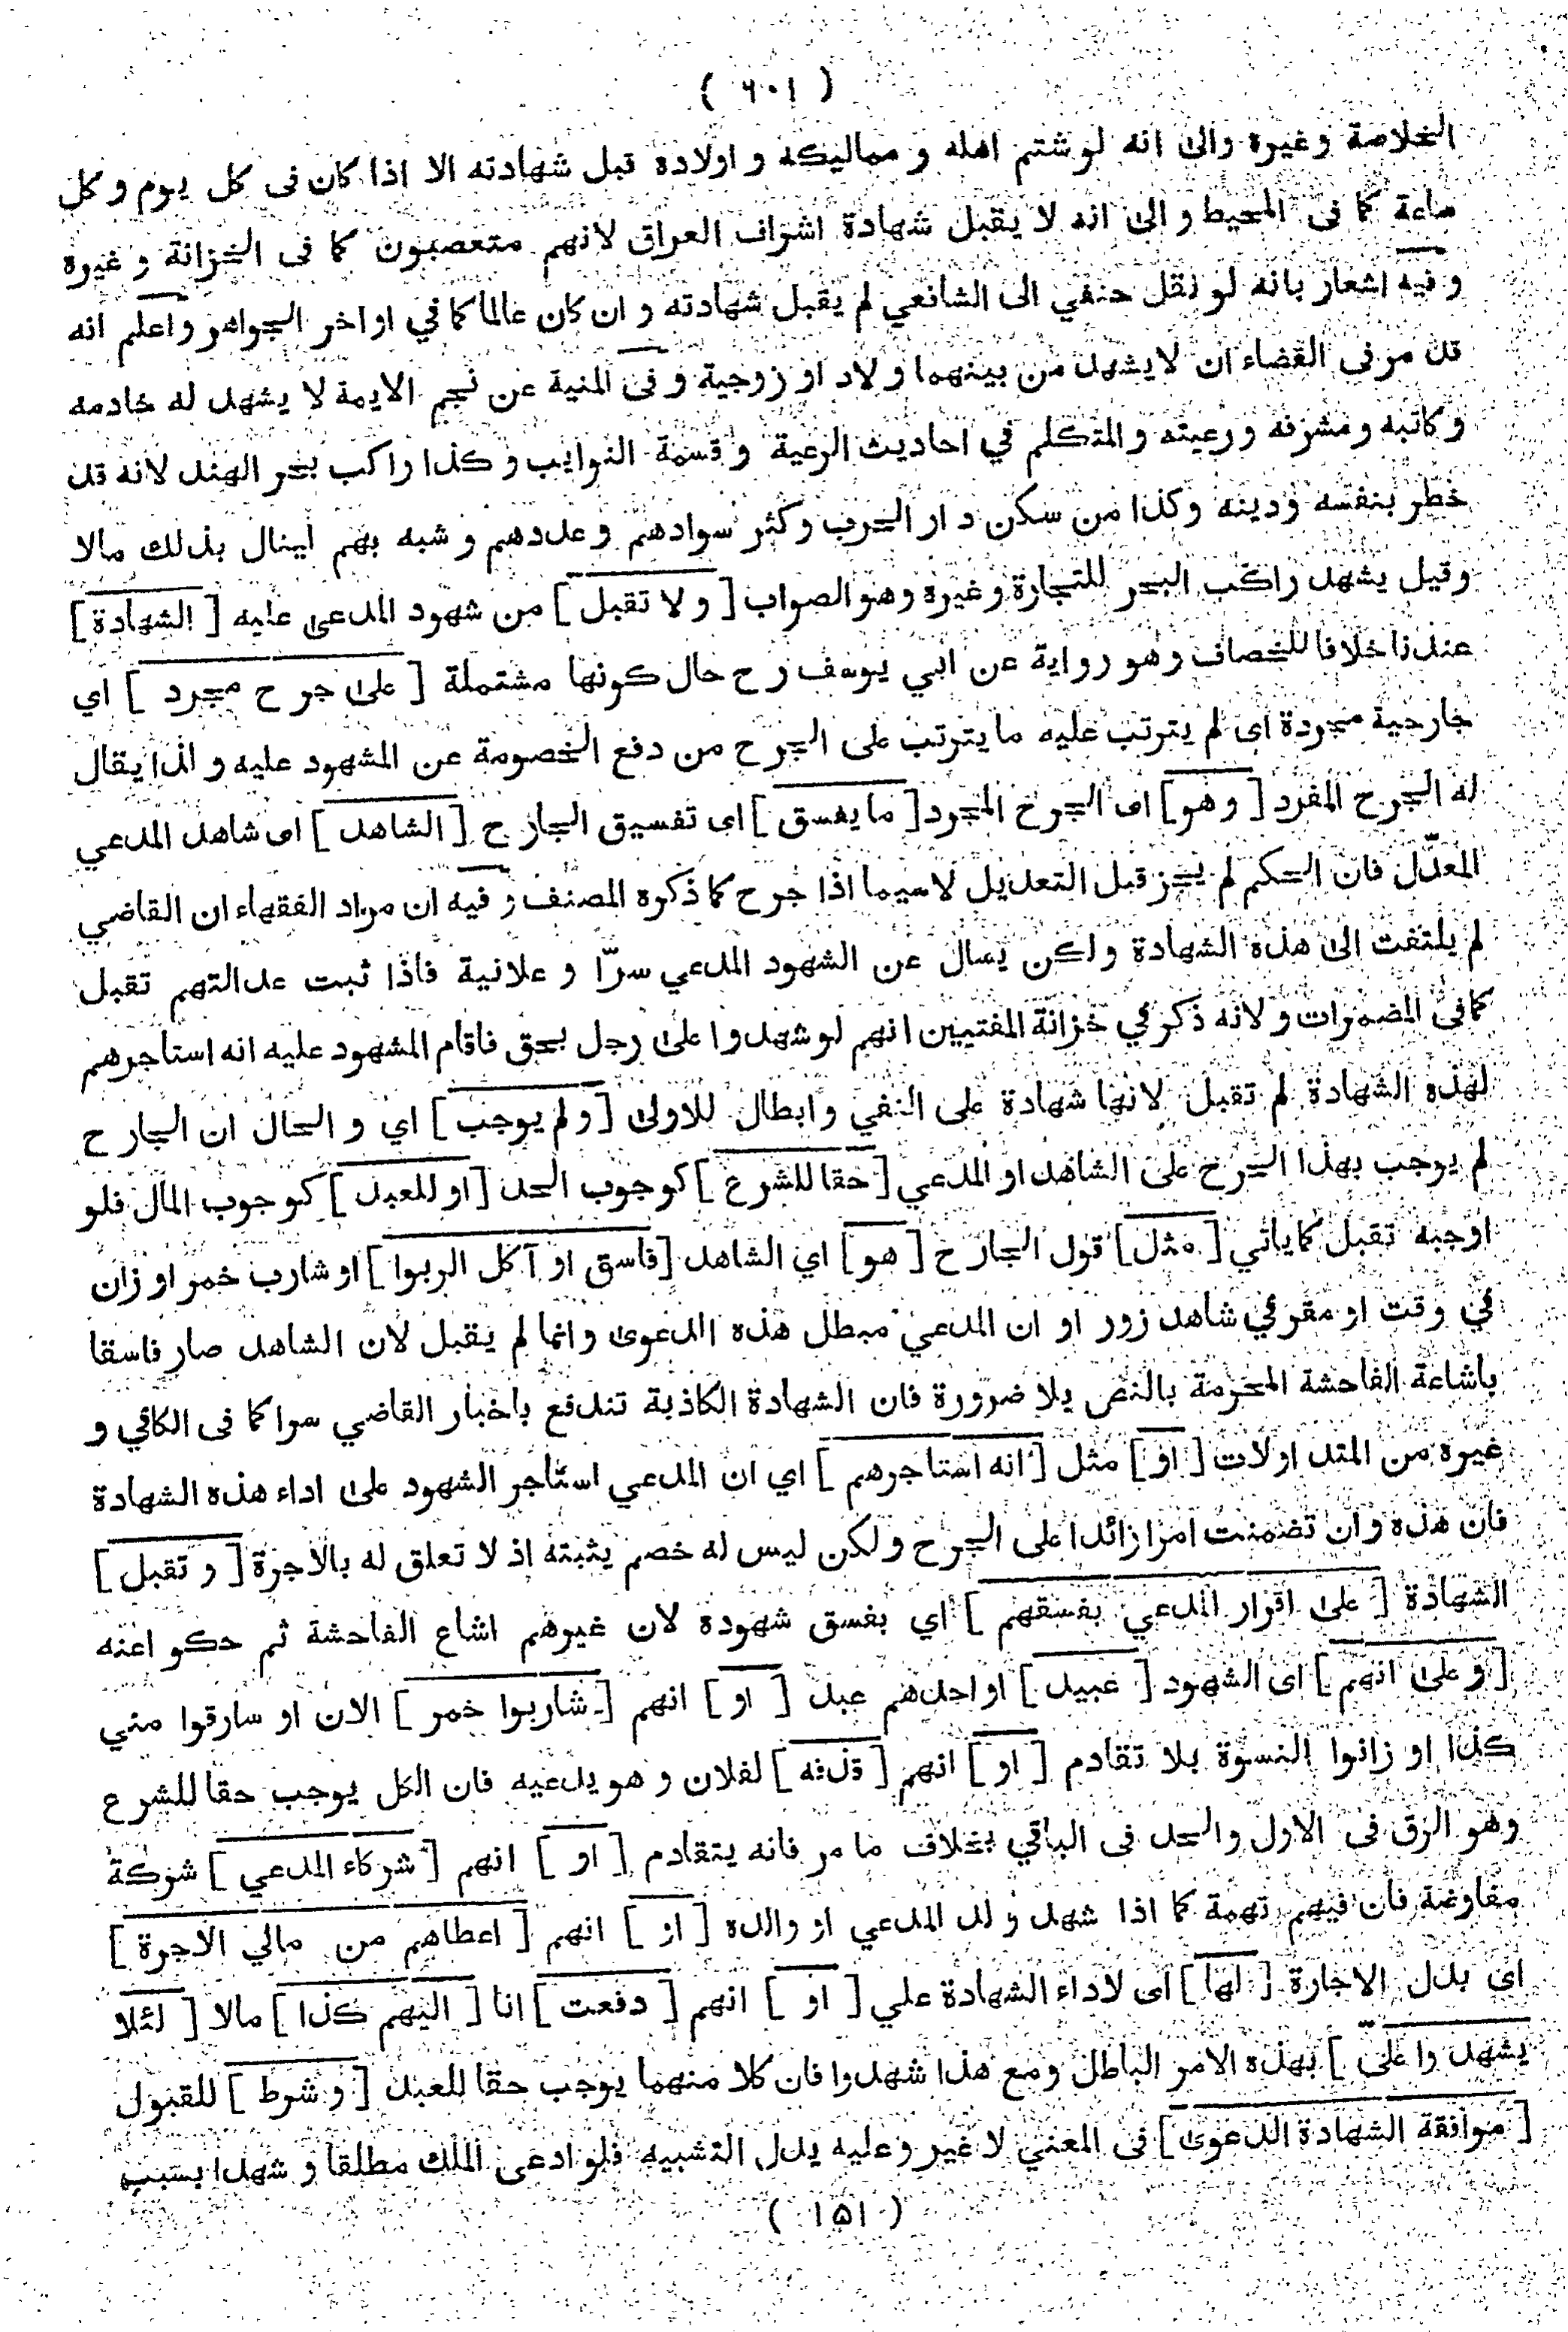 ( ٦٠١ )
الخلاصة وغيره والى انه لو شتم اهله و مماليكه و اولاده قبل شهادته الا اذا كان فى كل يوم و كل
ساعة كما فى المحيط و الى انه لا يقبل شهادة اشراف العراق لانهم متعصبون كما فى الخزانة و غيره
و فيه اشعار بانه لو نقل حنفي الى الشافعي لم يقبل شهادته و ان كان عالما كما في اواخر الجواهر واعلم انه
قد مر فى القضاء ان لا يشهد من بينهما ولاد او زوجية و فى المنية عن نجم الايمة لا يشهد له خادمه
و كاتبه و مشرفه و رعيته و المتكلم في احاديث الرعية و قسمة النوايب و كذا راكب بحر الهند لانه قد
خطر بنفسه و دينه و كذا من سكن دار الحرب و كثر سوادهم و عددهم و شبه بهم لينال بذلك مالا
وقيل يشهد راكب البحر للتجارة و غيره وهو الصواب [ و لا تقبل ] من شهود المدعى عليه [ الشهادة ]
عندنا خلافا للخصاف وهو رواية عن ابي يوسف ر ح حال كونها مشتملة [ على جرح مجرد ] اي
خارجية مجردة اى لم يترتب عليه ما يترتب على الجرح من دفع الخصومة عن المشهود عليه و لذا يقال
له الجرح المفرد [ وهو ] اى الجرح المجرد [ ما يفسق ] اى تفسيق الجارح [ الشاهد ] اى شاهد المدعي
المعدّل فان الحكم لم يجز قبل التعديل لاسيما اذا جرح كما ذكره المصنف و فيه ان مراد الفقهاء ان القاضي
لم يلتفت الى هذه الشهادة و لكن يسال عن الشهود المدعي سرّا و علانية فاذا ثبت عدالتهم تقبل
كما فى المضمرات و لانه ذكر في خزانة المفتيين انهم لو شهدوا على رجل بحق فاقام المشهود عليه انه استاجرهم
لهذه الشهادة لم تقبل لانها شهادة على النفي و ابطال للاولى [ و لم يوجب ] اي و الحال ان الجارح
لم يوجب بهذا الجرح على الشاهد او المدعي [ حقا للشرع ] كوجوب الحد [ او للعبد ] كوجوب المال فلو
اوجبه تقبل كما ياتي [ مثل ] قول الجارح [ هو ] اي الشاهد [ فاسق او آكل الربوا ] او شارب خمر او زان
في وقت او مقر في شاهد زور او ان المدعي مبطل هذه الدعوى و انما لم يقبل لان الشاهد صار فاسقا
باشاعة الفاحشة المحرمة بالنص بلا ضرورة فان الشهادة الكاذبة تندفع باخبار القاضي سرا كما فى الكافي و
غيره من المتداولات [ او ] مثل [ انه استاجرهم ] اي ان المدعي استاجر الشهود على اداء هذه الشهادة
فان هذه و ان تضمنت امرا زائدا على الجرح و لكن ليس له خصم يثبته اذ لا تعلق له بالاجرة [ و تقبل ]
الشهادة [ على اقرار المدعي بفسقهم ] اي بفسق شهوده لان غيرهم اشاع الفاحشة ثم حكوا عنه
[ و على انهم ] اى الشهود [ عبيد ] او احدهم عبد [ او ] انهم [ شاربوا خمر ] الان او سارقوا مني
كذا او زانوا النسوة بلا تقادم [ او ] انهم [ قذفه ] لفلان و هو يدعيه فان الكل يوجب حقا للشرع
وهو الرق فى الاول و الحد فى الباقي بخلاف ما مر فانه يتقادم [ او ] انهم [ شركاء المدعي ] شركة
مفاوضة فان فيهم تهمة كما اذا شهد ولد المدعي او والده [ او ] انهم [ اعطاهم من مالي الاجرة ]
اى بدل الاجارة [ لها ] اى لاداء الشهادة علي [ او ] انهم [ دفعت ] انا [ اليهم كذا ] مالا [ لئلا
يشهدوا علىّ ] بهذه الامر الباطل و مع هذا شهدوا فان كلا منهما يوجب حقا للعبد [ و شرط ] للقبول
[ موافقة الشهادة الدعوى ] فى المعني لا غير و عليه يدل التشبيه فلو ادعى الملك مطلقا و شهدا بسبب
( ١٥١ )